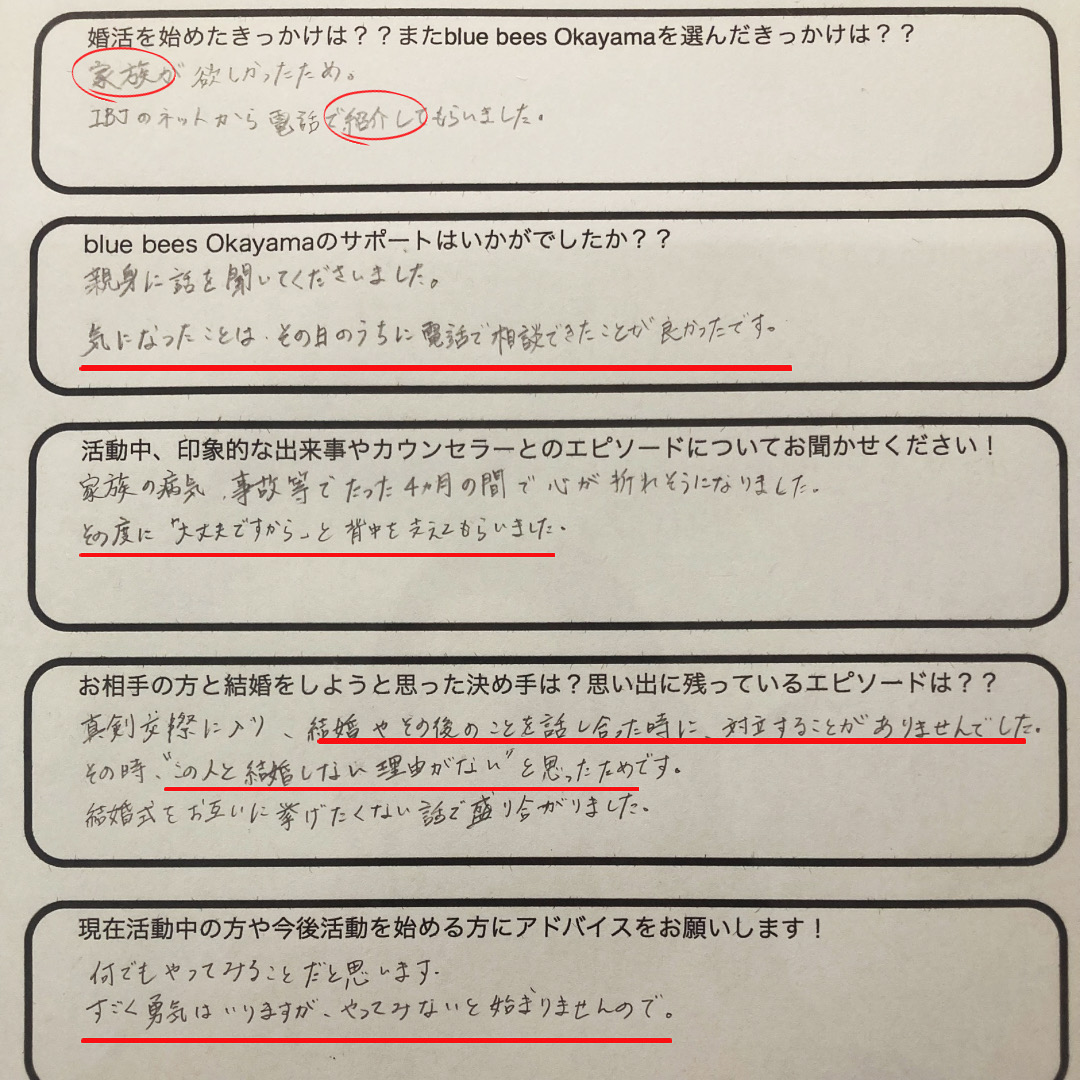 婚活を始めたきっかけは？？またblue bees Okayamaを選んだきっかけは？？
家族が欲しかったため。
IBJのネットから電話で紹介してもらいました。
blue bees Okayamaのサポートはいかがでしたか？？
親身に話を聞いてくださいました。
気になったことは、その日のうちに電話で相談できたことが良かったです。
活動中、印象的な出来事やカウンセラーとのエピソードについてお聞かせください！
家族の病気、事故等でたった4ヵ月の間で心が折れそうになりました。
その度に「大丈夫ですから」と背中を支えてもらいました。
お相手の方と結婚をしようと思った決め手は？思い出に残っているエピソードは？？
真剣交際に入り、結婚やその後のことを話し合った時に、対立することがありませんでした。
その時、"この人と結婚しない理由がない"と思ったためです。
結婚式をお互いに挙げたくない話で盛り合がりました。
現在活動中の方や今後活動を始める方にアドバイスをお願いします！
何でもやってみることだと思います.
すごく勇気はいりますが、やってみないと始まりませんので。